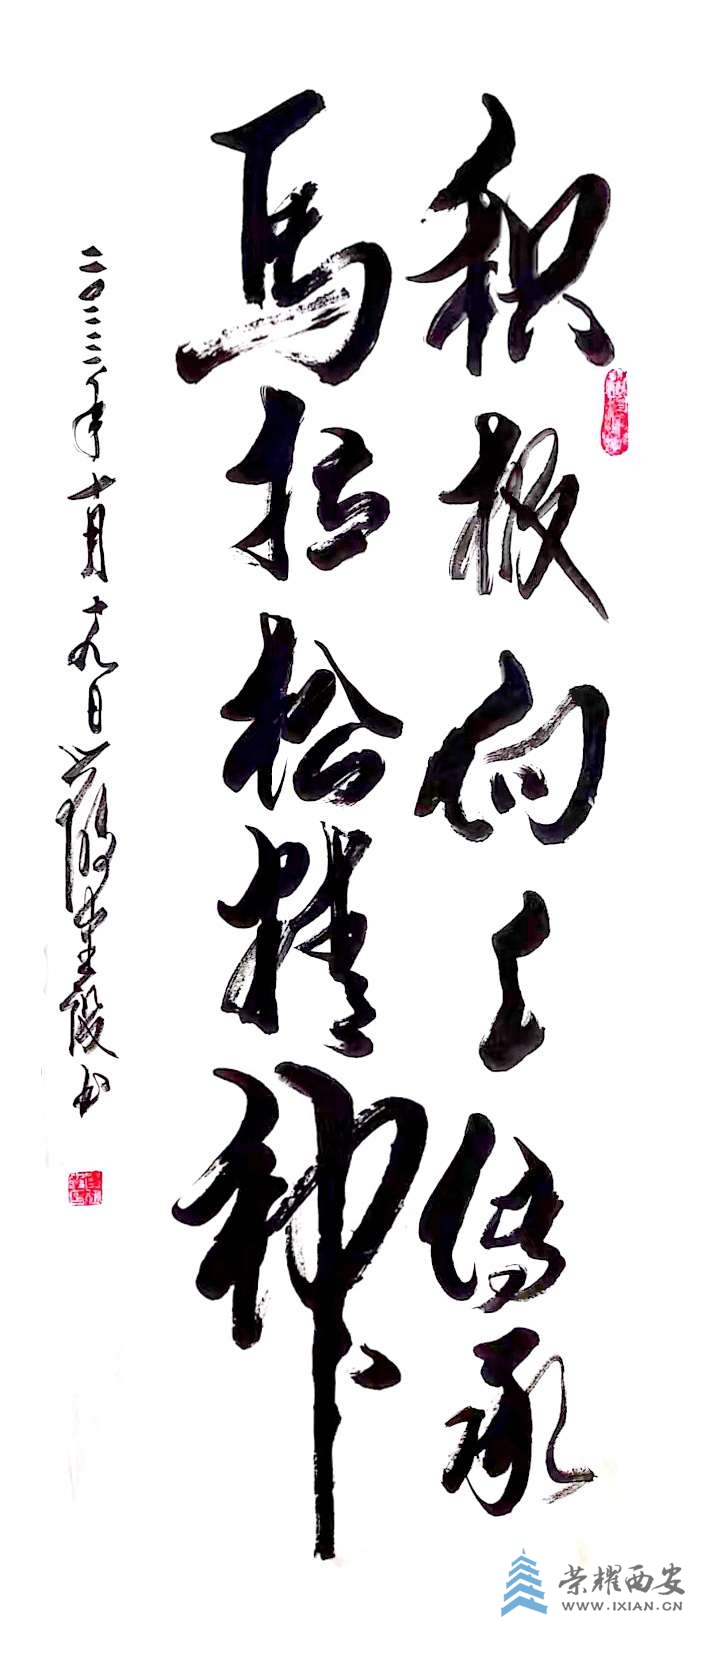 积极向上传承
馬拉松精神
二〇二三年十月十九日 书
荣耀西安
WWW.IXIAN.CN